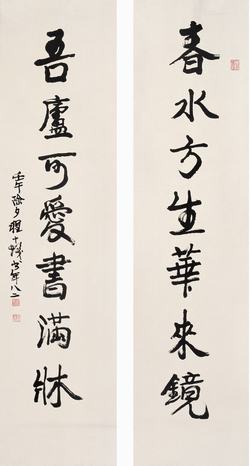 春水方生華來鏡
吾廬可愛書滿牀
壬午除夕
年八二